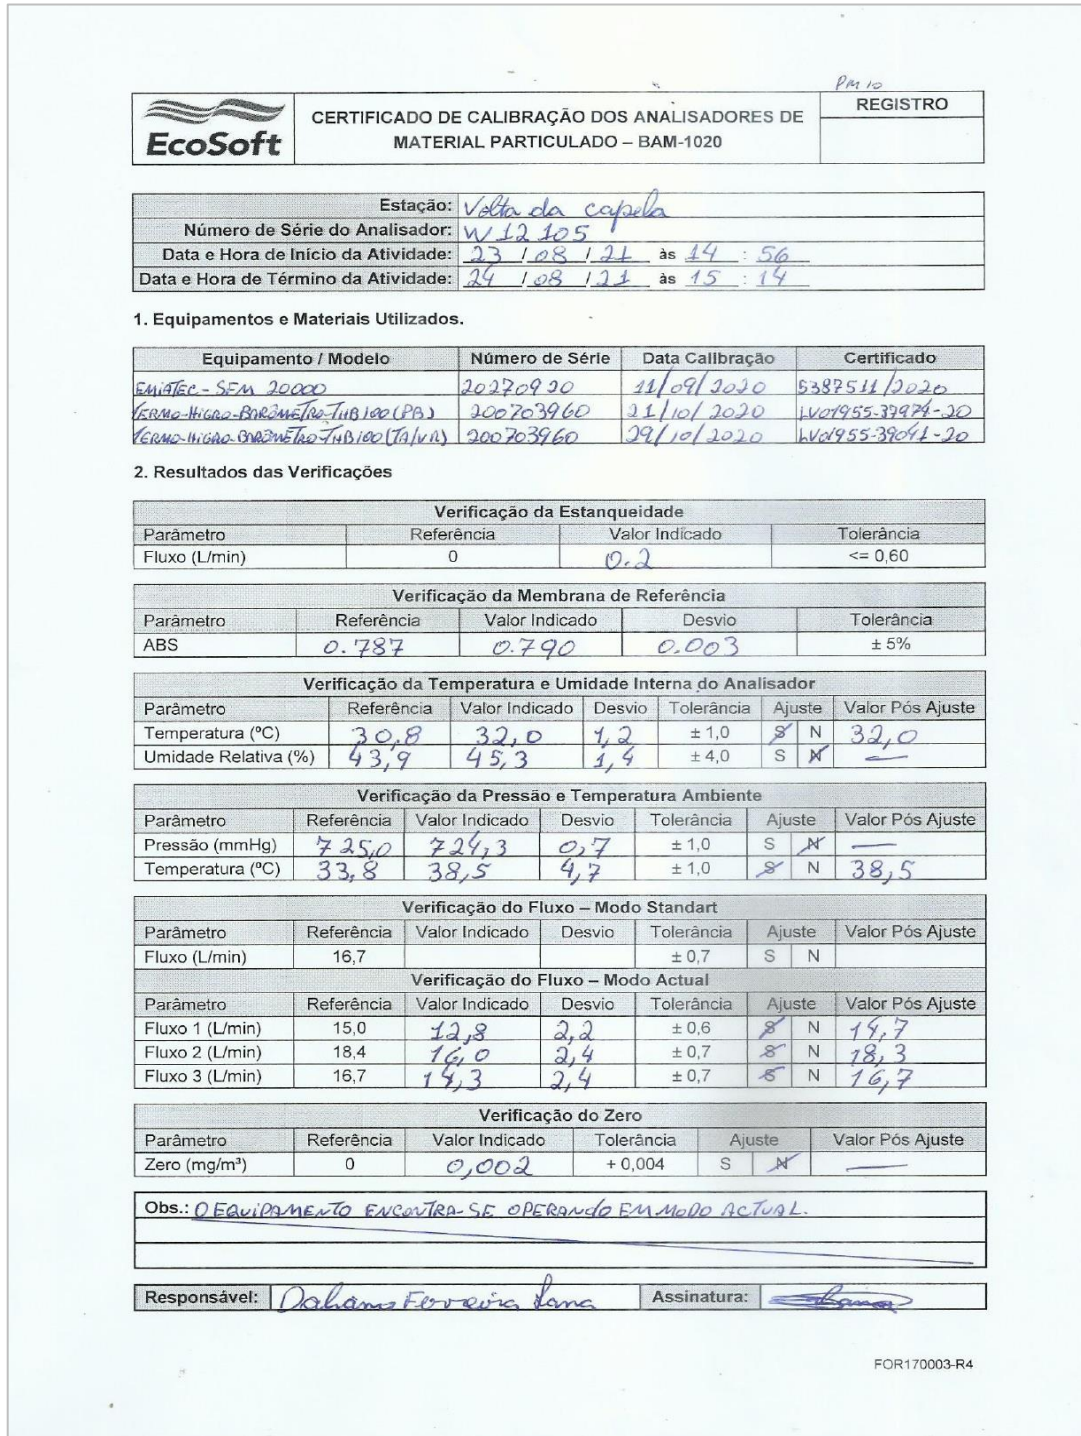 PM 10
EcoSoft
CERTIFICADO DE CALIBRAÇÃO DOS ANALISADORES DE
MATERIAL PARTICULADO – BAM-1020
REGISTRO
Estação: Volta da capela
Número de Série do Analisador: W12105
Data e Hora de Início da Atividade: 23 / 08 / 21 às 14 : 56
Data e Hora de Término da Atividade: 24 / 08 / 21 às 15 : 14
1. Equipamentos e Materiais Utilizados.
Equipamento / Modelo Número de Série Data Calibração Certificado
EMIATEC - SFM 20000 20270920 11/09/2020 5387511/2020
TERMO-HIGRO-BARÔMETRO-THB100 (PB) 200703960 21/10/2020 LV01955-37974-20
TERMO-HIGRO-BARÔMETRO-THB100 (TA/UR) 200703960 29/10/2020 LV01955-39041-20
2. Resultados das Verificações
Verificação da Estanqueidade
Parâmetro Referência Valor Indicado Tolerância
Fluxo (L/min) 0 0.2 <= 0,60
Verificação da Membrana de Referência
Parâmetro Referência Valor Indicado Desvio Tolerância
ABS 0.787 0.790 0.003 ± 5%
Verificação da Temperatura e Umidade Interna do Analisador
Parâmetro Referência Valor Indicado Desvio Tolerância Ajuste Valor Pós Ajuste
Temperatura (ºC) 30.8 32,0 1,2 ± 1,0 S N 32,0
Umidade Relativa (%) 43,9 45,3 1,4 ± 4,0 S N —
Verificação da Pressão e Temperatura Ambiente
Parâmetro Referência Valor Indicado Desvio Tolerância Ajuste Valor Pós Ajuste
Pressão (mmHg) 725,0 724,3 0,7 ± 1,0 S N —
Temperatura (ºC) 33,8 38,5 4,7 ± 1,0 S N 38,5
Verificação do Fluxo – Modo Standart
Parâmetro Referência Valor Indicado Desvio Tolerância Ajuste Valor Pós Ajuste
Fluxo (L/min) 16,7 ± 0,7 S N
Verificação do Fluxo – Modo Actual
Parâmetro Referência Valor Indicado Desvio Tolerância Ajuste Valor Pós Ajuste
Fluxo 1 (L/min) 15,0 12,8 2,2 ± 0,6 S N 14,7
Fluxo 2 (L/min) 18,4 16,0 2,4 ± 0,7 S N 18,3
Fluxo 3 (L/min) 16,7 14,3 2,4 ± 0,7 S N 16,7
Verificação do Zero
Parâmetro Referência Valor Indicado Tolerância Ajuste Valor Pós Ajuste
Zero (mg/m³) 0 0,002 + 0,004 S N —
Obs.: O EQUIPAMENTO ENCONTRA-SE OPERANDO EM MODO ACTUAL.
Responsável: Ferreira Lana Assinatura:
FOR170003-R4